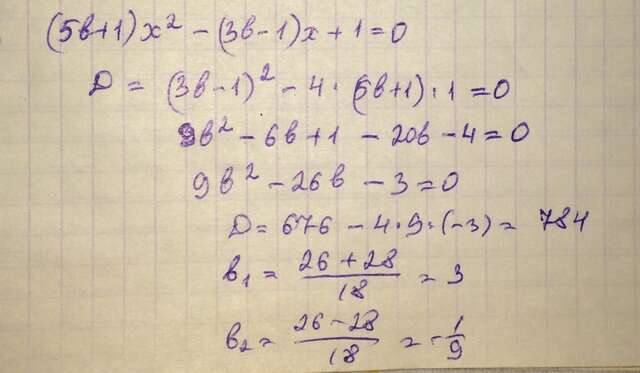 (5b+1)x² - (3b-1)x + 1 = 0
D = (3b-1)² - 4 · (5b+1) · 1 = 0
9b² - 6b + 1 - 20b - 4 = 0
9b² - 26b - 3 = 0
D = 676 - 4 · 9 · (-3) = 784
b₁ = (26 + 28)/18 = 3
b₂ = (26 - 28)/18 = -1/9